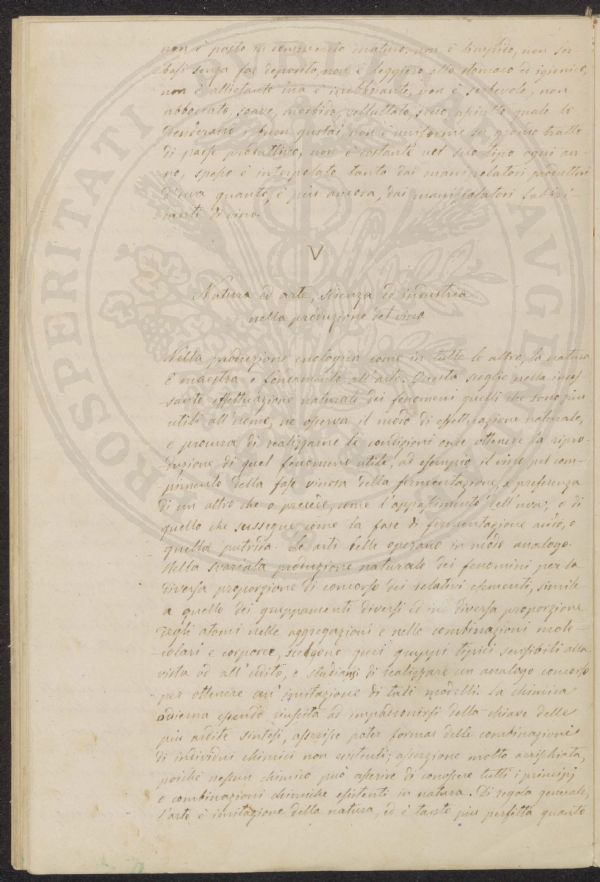 non è posto in commercio maturo, non è limpido, non ser-
basi senza far deposito, non è leggiero allo stomaco ed igienico,
non è allettante ma è inebbriante, non è serbevole, non
abboccato, soave, morbido, vellutato, quale lo
desiderano i buon gustai, non è uniforme su grande tratto
di paese produttivo, non è costante nel suo tipo ogni an-
no, spesso è interpolato tanto dai manipolatori produttori
d'uva quanto, e più ancora, dai manipolatori fabbri-
canti di vino.
V
Natura ed arte, scienza ed industria
nella produzione del vino
Nella produzione enologica come in tutte le altre, la natura
è maestra e fondamento all'arte. Questa sceglie nella inces-
sante effettuazione naturale dei fenomeni quelli che sono più
utili all'uomo, ne osserva il modo di effettuazione naturale,
e procura di realizzarne le condizioni onde ottenere la ripro-
duzione di quel fenomeno utile, ad esempio il vino pel com-
pimento della fase vinosa della fermentazione, a preferenza
di un altro che o precede, come l'appassimento dell'uva, o di
quello che sussegue come la fase di fermentazione acido, o
quella putrida. Le arti belle operano in modo analogo.
Nella svariata produzione naturale dei fenomeni per la
diversa proporzione di concorso dei relativi elementi, simile
a quelle dei gruppamenti diversi ed in diversa proporzione
degli atomi nelle aggregazioni e nelle combinazioni mole-
colari e corporee, scelgono quei gruppi tipici sensibili alla
vista od all'udito, e studiansi di realizzare un analogo concorso
per ottenere un'imitazione di tali modelli. La chimica
odierna essendo riuscita ad impadronirsi della chiave delle
più ardite sintesi, asserisce poter formar delle combinazioni
di individui chimici non esistenti; asserzione molto arrischiata,
poichè nessun chimico può asserire di conoscere tutti i principj
e combinazioni chimiche esistenti in natura. Di regola generale
l'arte è imitazione della natura, ed è tanto più perfetta quanto
PROSPERITATI PUBLICAE AUGENDAE